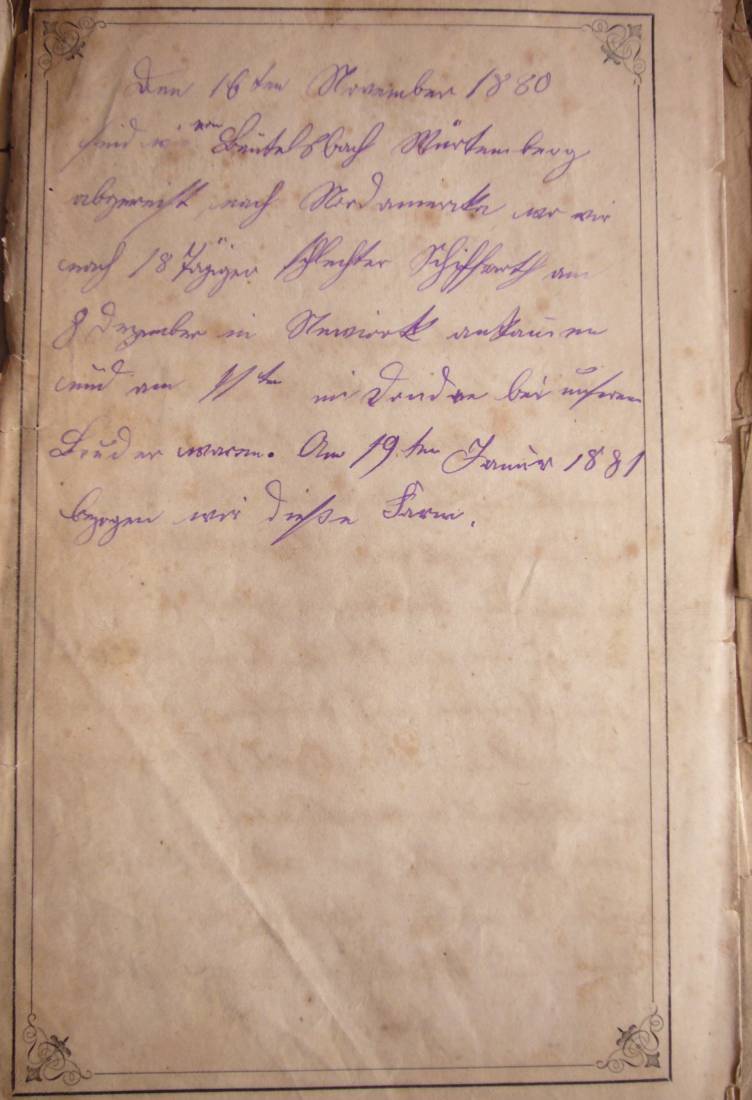 Den 16ten November 1880
sind wir von Beutelsbach Würtemberg
abgereist nach Nordamerika wo wir
nach 18 Tägiger schlechter Schiffarth am
8 Dezember in Newiork ankamen
und am 11ten in bei unserem
Bruder waren. Am 19.ten Januar 1881
bezogen wir diese Farm.